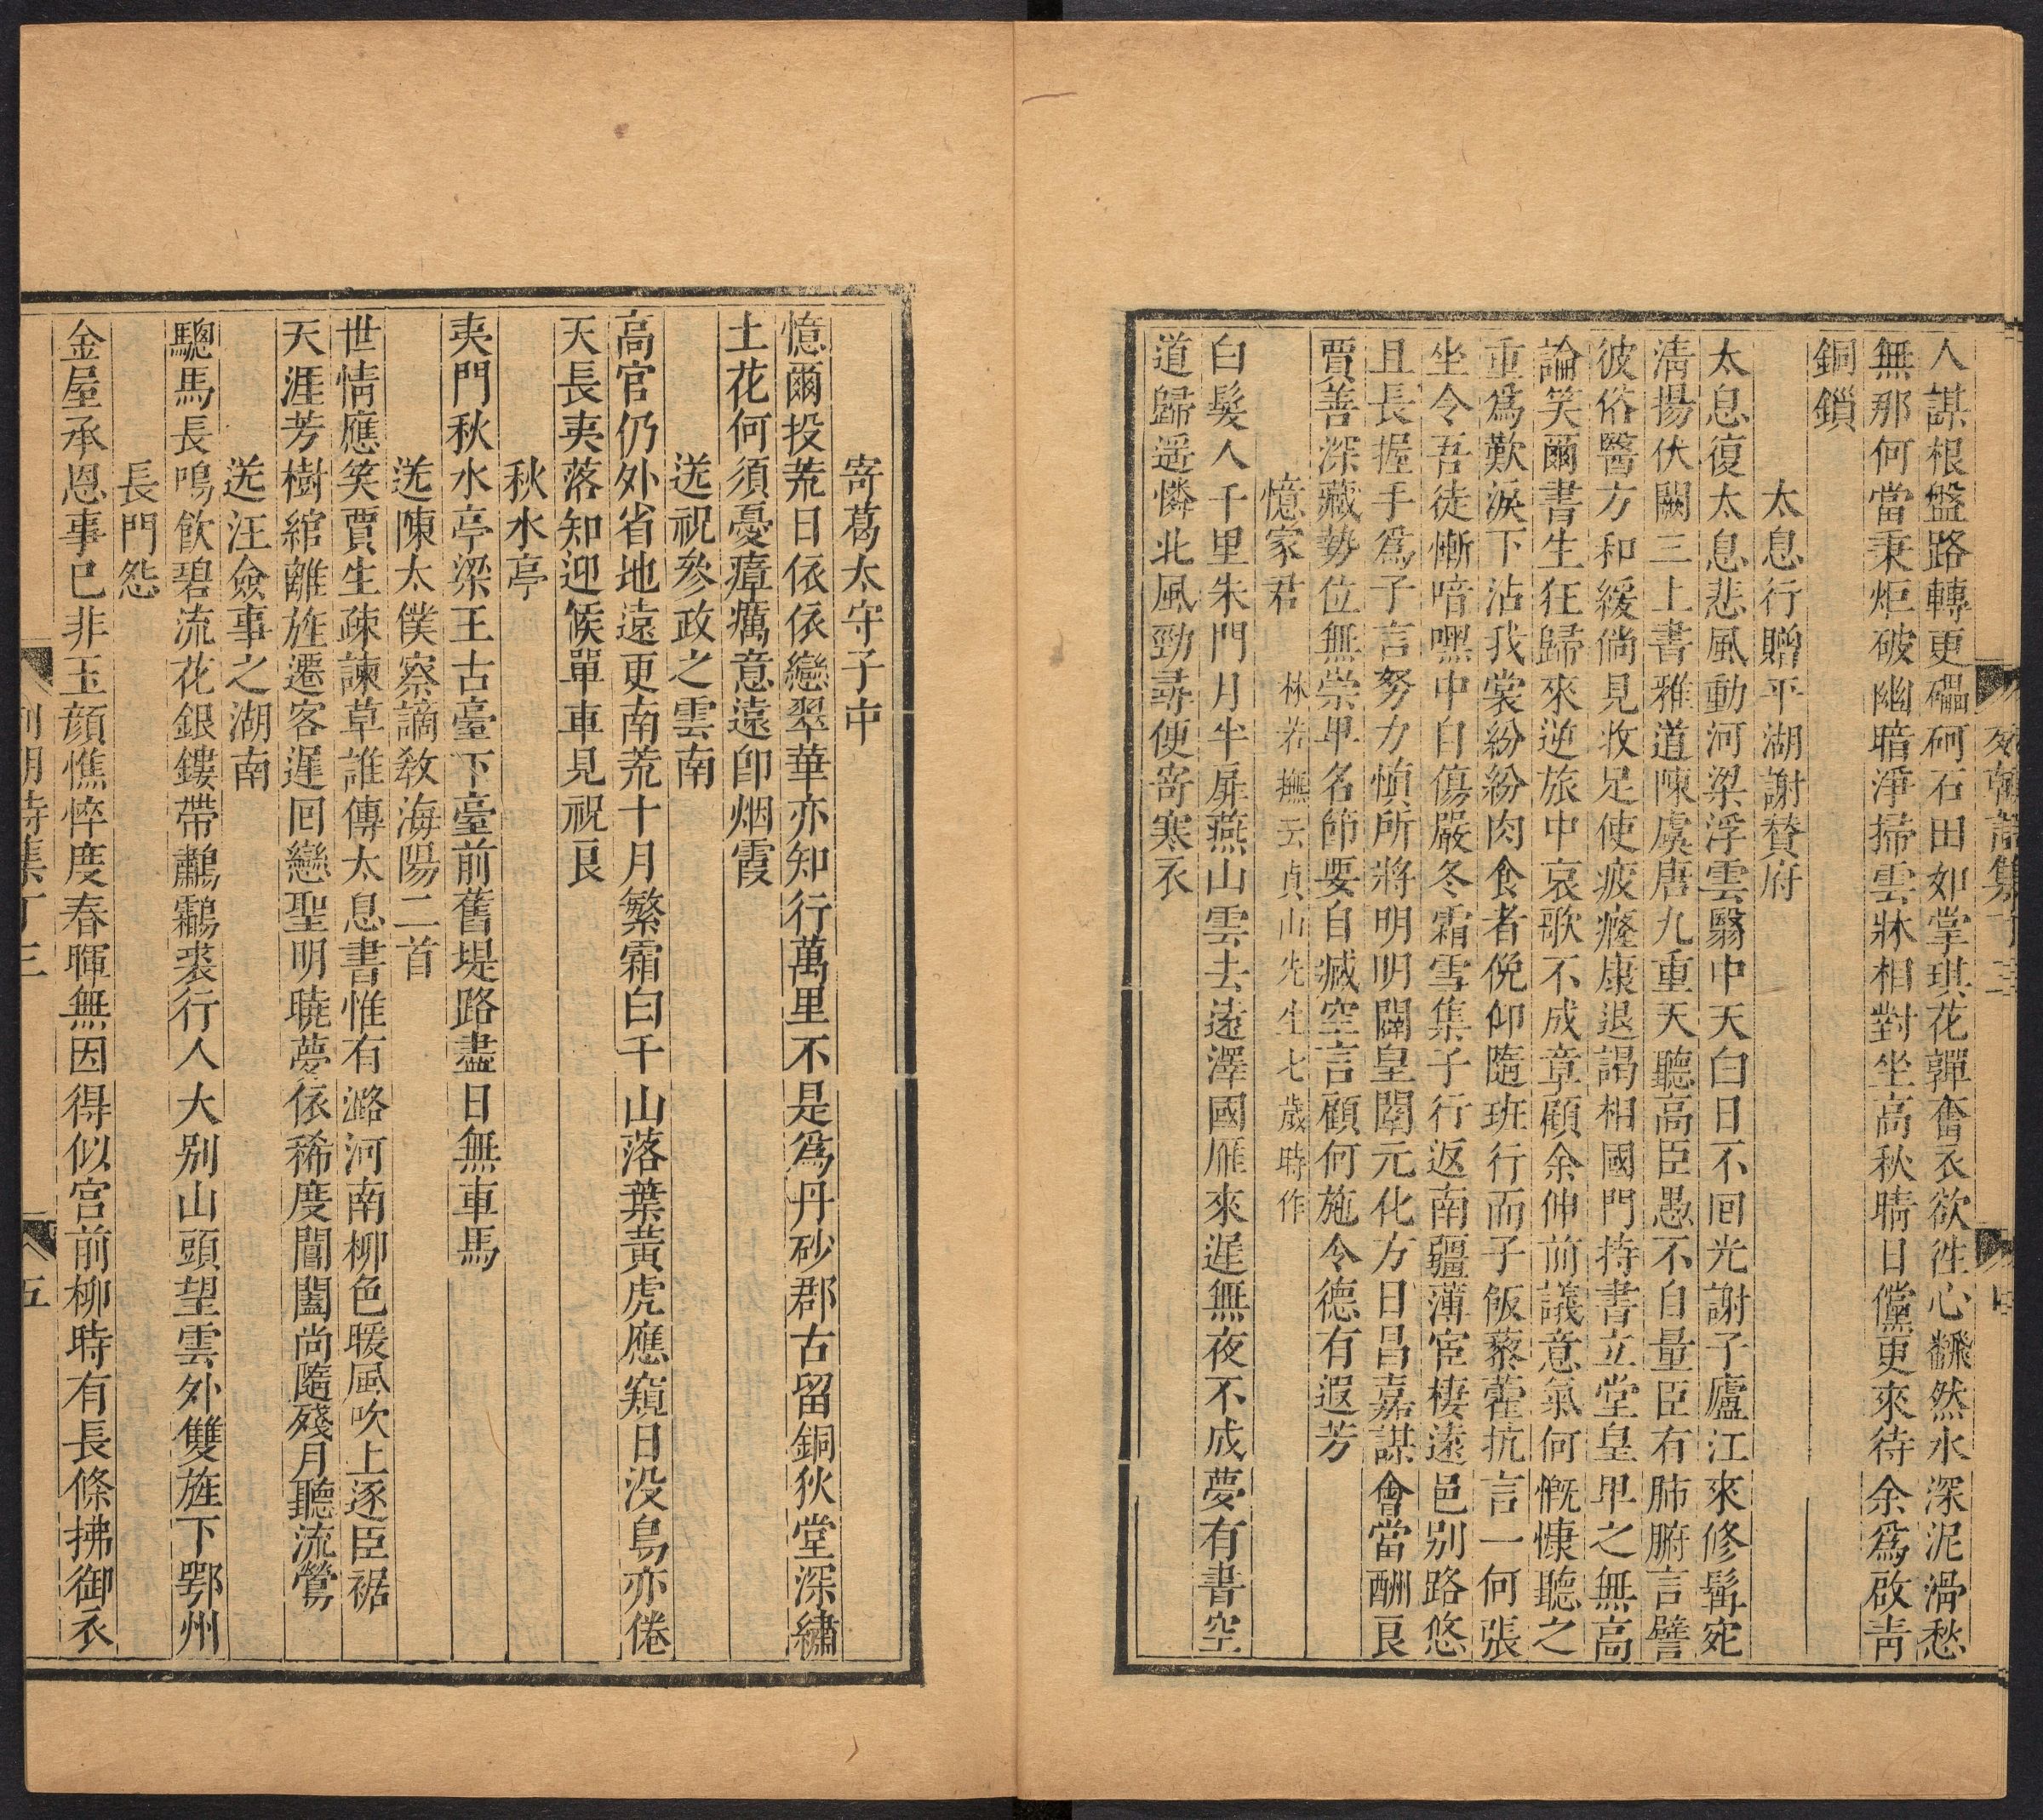 人謀根盤路轉更礧砢石田如掌琪花嚲奮衣欲徃心飜然水深泥滑愁
無那何當秉炬破幽暗淨掃雲牀相對坐高秋晴日儻更來待余爲啟靑
銅鎖
太息行贈平湖謝賛府
太息復太息悲風動河梁浮雲翳中天白日不囘光謝子廬江來修髯宛
淸揚伏闕三上書雅道陳虞唐九重天聽高臣愚不自量臣有肺腑言譬
彼俗醫方和緩倘見收足使疲癃康退謁相國門持書立堂皇卑之無高
論笑爾書生狂歸來逆旅中哀歌不成章顧余伸前議意氣何慨慷聽之
重爲歎淚下沾我裳紛紛肉食者俛仰隨班行而子飯藜藿抗言一何張
坐令吾徒慚喑嘿中自傷嚴冬霜雪集子行返南疆薄宦棲遠邑别路悠
且長握手爲子言努力愼所將明明闢皇闈元化方日昌嘉謀會當酬良
賈善深藏勢位無崇卑名節要自臧空言顧何施令德有遐芳
憶家君 林若撫云貞山先生七歲時作
白髮人千里朱門月半扉燕山雲去遠澤國雁來遲無夜不成夢有書空
道歸遥憐北風勁尋便寄寒衣
寄葛太守子中
憶爾投荒日依依戀翠華亦知行萬里不是爲丹砂郡古留銅狄堂深繡
土花何須憂瘴癘意遠卽烟霞
送祝叅政之雲南
高官仍外省地遠更南荒十月繁霜白千山落葉黃虎應窺日没鳥亦倦
天長夷落知迎候單車見祝良
秋水亭
夷門秋水亭梁王古臺下臺前舊堤路盡日無車馬
送陳太僕察謫敎海陽二首
世情應笑賈生疎諫草誰傳太息書惟有潞河南柳色暖風吹上逐臣裾
天涯芳樹綰離旌遷客遲囘戀聖明曉夢依稀度閶闔尚隨殘月聽流鶯
送汪僉事之湖南
驄馬長鳴飮碧流花銀鏤帶鷫鸘裘行人大别山頭望雲外雙旌下鄂州
長門怨
金屋承恩事已非玉顔憔悴度春暉無因得似宫前柳時有長條拂御衣
列朝詩集丁三 五